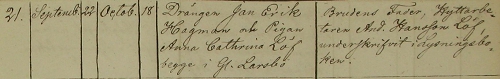 21. Septemb. 22 Octob. 18 Drängen Jan Erik Brudens Fader, Hyttarbe-
Hagman och Pigan taren And. Hansson Löf,
Anna Cathrina Löf underskrifvit i lysningsbo-
begge i Gl. Larsbo ken.